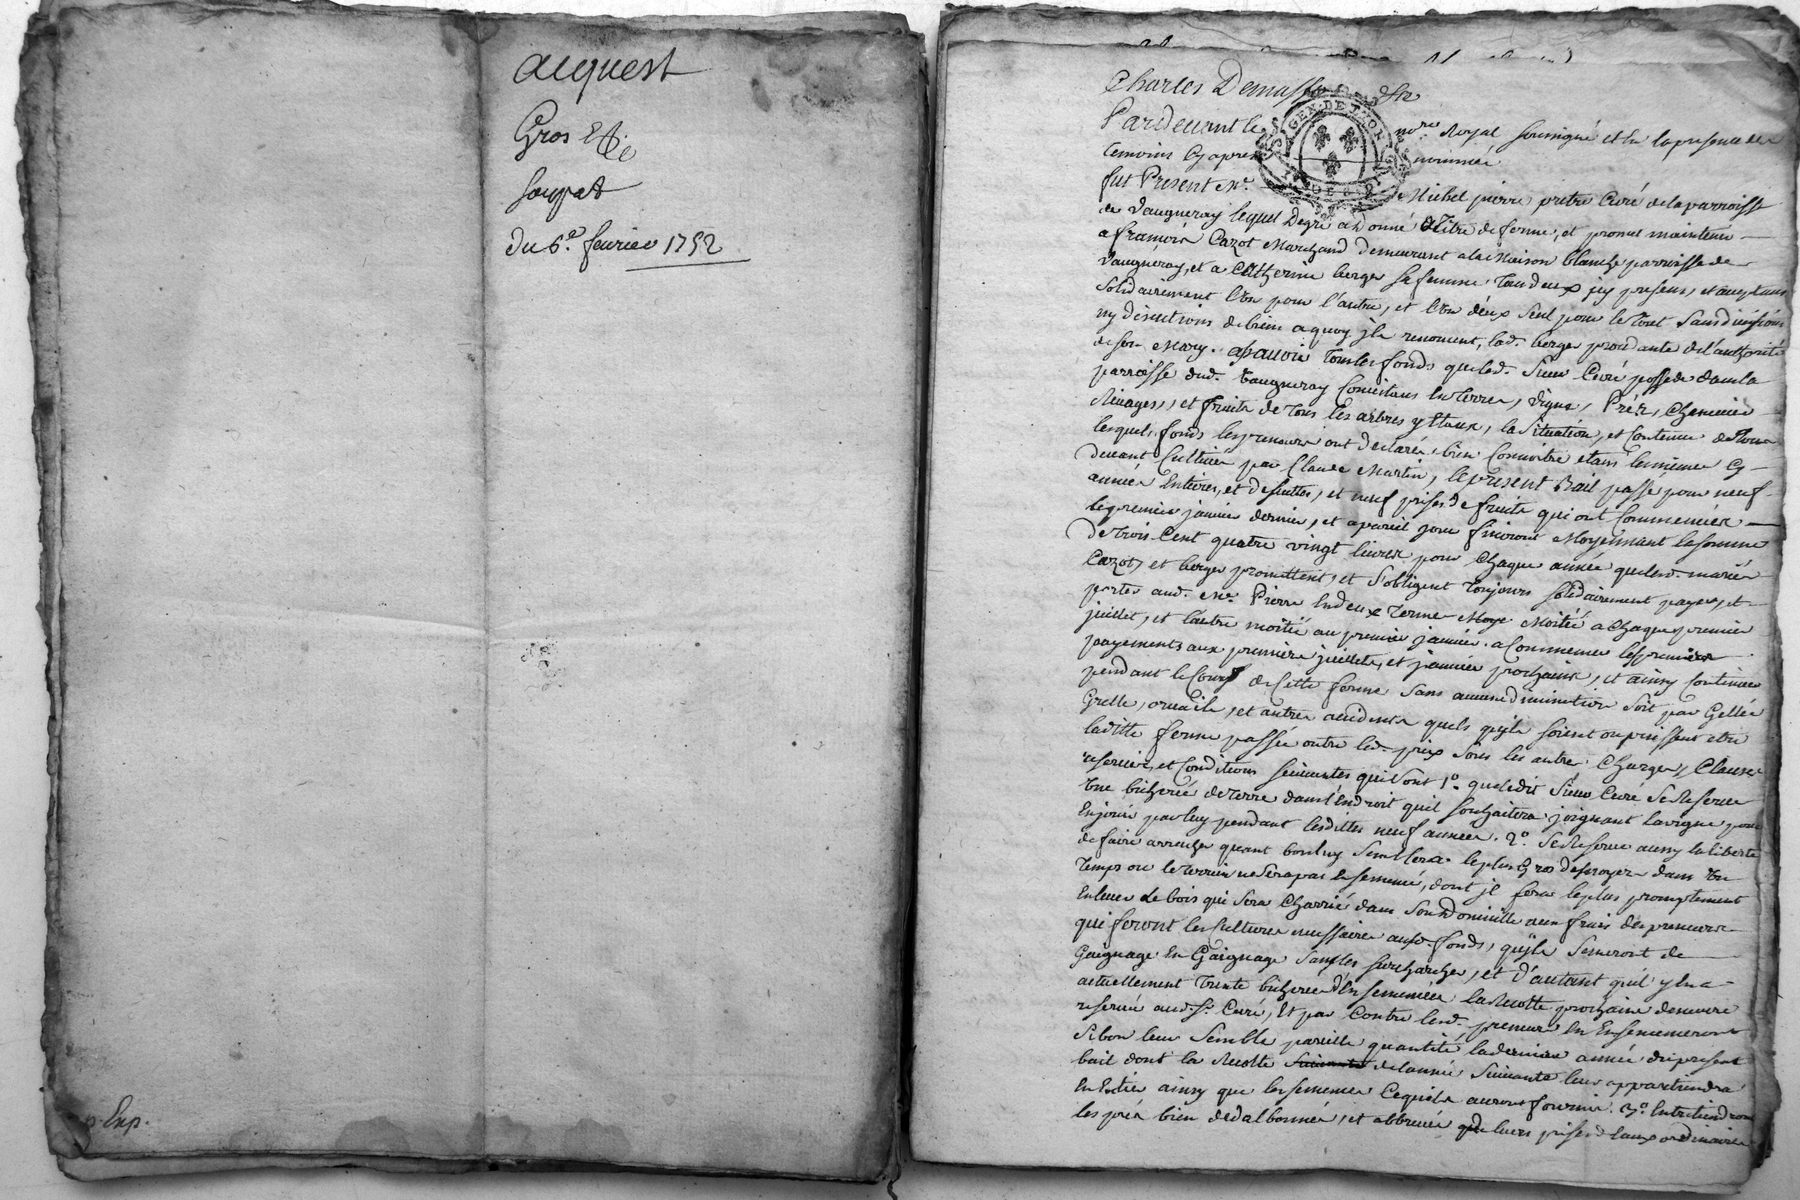 acquest
Gros
Souppat
du 6e. fevrier 1752
p. Exp.
Charles Demasso
Pardevant le no.re Royal soussigné et en la presence des
temoins cy apres nommés
GEN. DE LYON
fut Present Me. Michel pierre pretre Curé de la parroisse
de Vaugneray lequel Degré a Donné a titre de ferme, et promet maintenir
a francois Cazot Marchand demeurant a la Maison blanche parroisse de
Vaugneray, et a Catherine berger sa femme tous deux icy presens, et acceptans
solidairement l'un pour l'autre, et l'un d'eux seul pour le tout sans division
ny discutions de biens a quoy ils renoncent, lad. berger procedante de l'authorité
de son Mary. asçavoir tous les fonds que led. Sieur Curé possede dans la
parroisse dud. Vaugneray Consistans en terres, vignes, Préz, Chenevier
Rivages, et fruits de tous les arbres y etaux, la Situation, et Contenue de tous
lesquels fonds les preneurs ont declarés bien Connoitre etans les mêmes cy
devant Cultivés par Claude Martin, le present Bail passé pour neuf
années Entieres, et desuittes, et neuf prises de fruits qui ont Commencées
le premier janvier dernier, et a pareil jour finiront Moyennant la somme
de trois Cent quatre vingt livres pour Chaque année que lesd. mariés
Cazot, et berger promettent, et s'obligent toujours solidairement payer, et
porter aud. Me. Pierre En deux termes Moye. Moitié a Chaque premier
juillet, et l'autre moitié au premier janvier. a Commencer les premiers
payements aux premiers juillet, et janvier prochains, et ainsy Continuer
pendant le Cours de Cette ferme sans aucune diminution soit par Gellée
Grelle, ovaile, et autres accidents quels qu'ils soient ou puissent etre
laditte ferme passée outre led. prix sous les autres Charges, Clauses
reserves, et Conditions suivantes qui sont 1o. que ledit Sieur Curé se Reserve
une bicherée de terre dans l'Endroit quil souhaitera joignant la vigne pour
En jouir par luy pendant lesdittes neuf années. 2o. Se Reserve aussy la liberté
de faire arracher quant bon luy Semblera le plus Gros des noyers dans un
temps ou le terrain ne sera pas Ensemencé, dont il fera le plus promptement
Enlever le bois qui sera Charrié dans son domicille aux frais des preneurs
qui feront les Cultures necessaires auxd. fonds, qu'ils Semeront de
Gaignage En Gaignage sans les surcharger, et d'autant quil y en a
actuellement trente bicherées d'Ensemencées la Recolte prochaine demeure
reservée aud. Sr. Curé, Et par Contre lesd. preneurs En Ensemenceront
si bon leur semble pareille quantité la derniere année du present
bail dont la Recolte de l'année suivante leur appartiendra
En Entier ainsy que les semences Lequels auront fournies. 3o. Entretiendront
les prés bien dedalbonnés, et abbreuvés de leurs prises d'eaux ordinaires